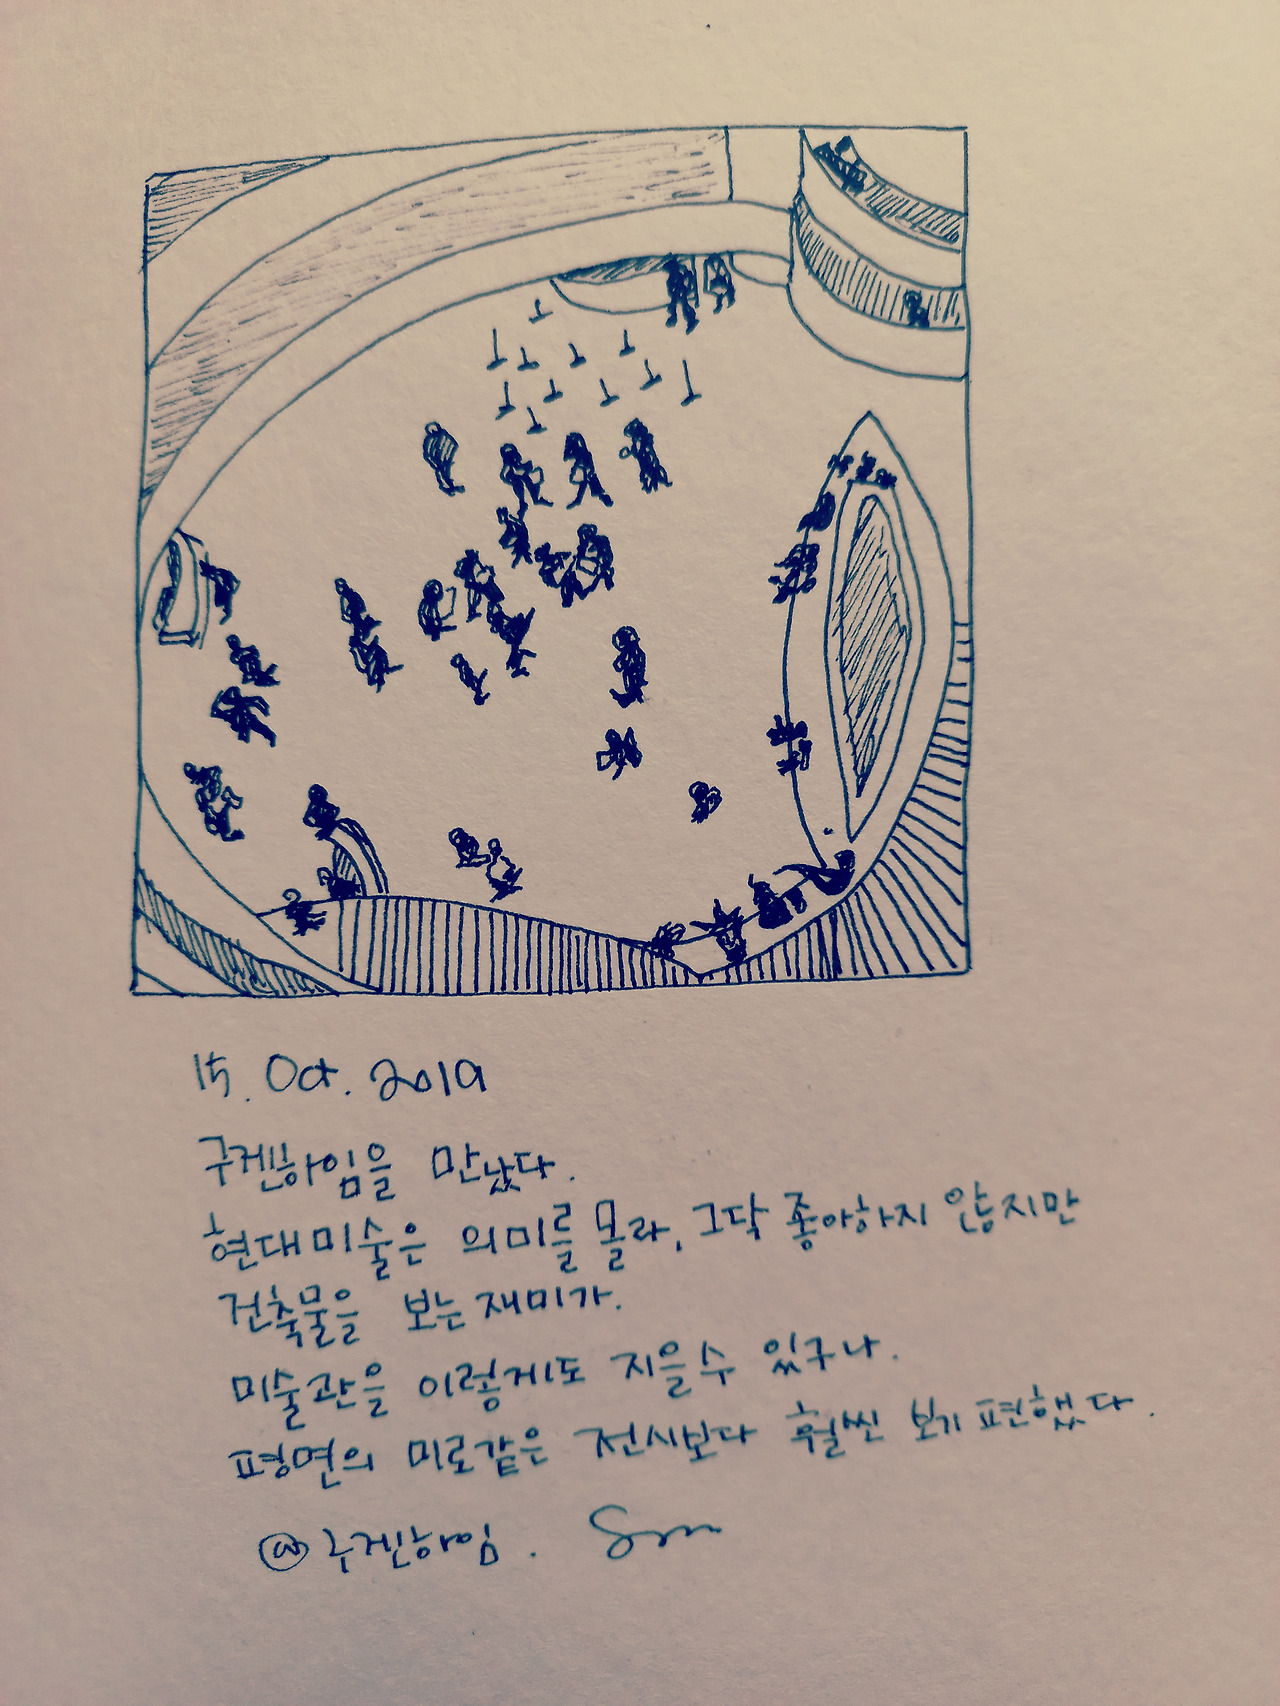 15. Oct. 2019
구겐하임을 만났다.
현대미술은 의미를 몰라, 그닥 좋아하지 않지만
건축물을 보는 재미가.
미술관을 이렇게도 지을수 있구나.
평면의 미로같은 전시보다 훨씬 보기 편했다.
@구겐하임.